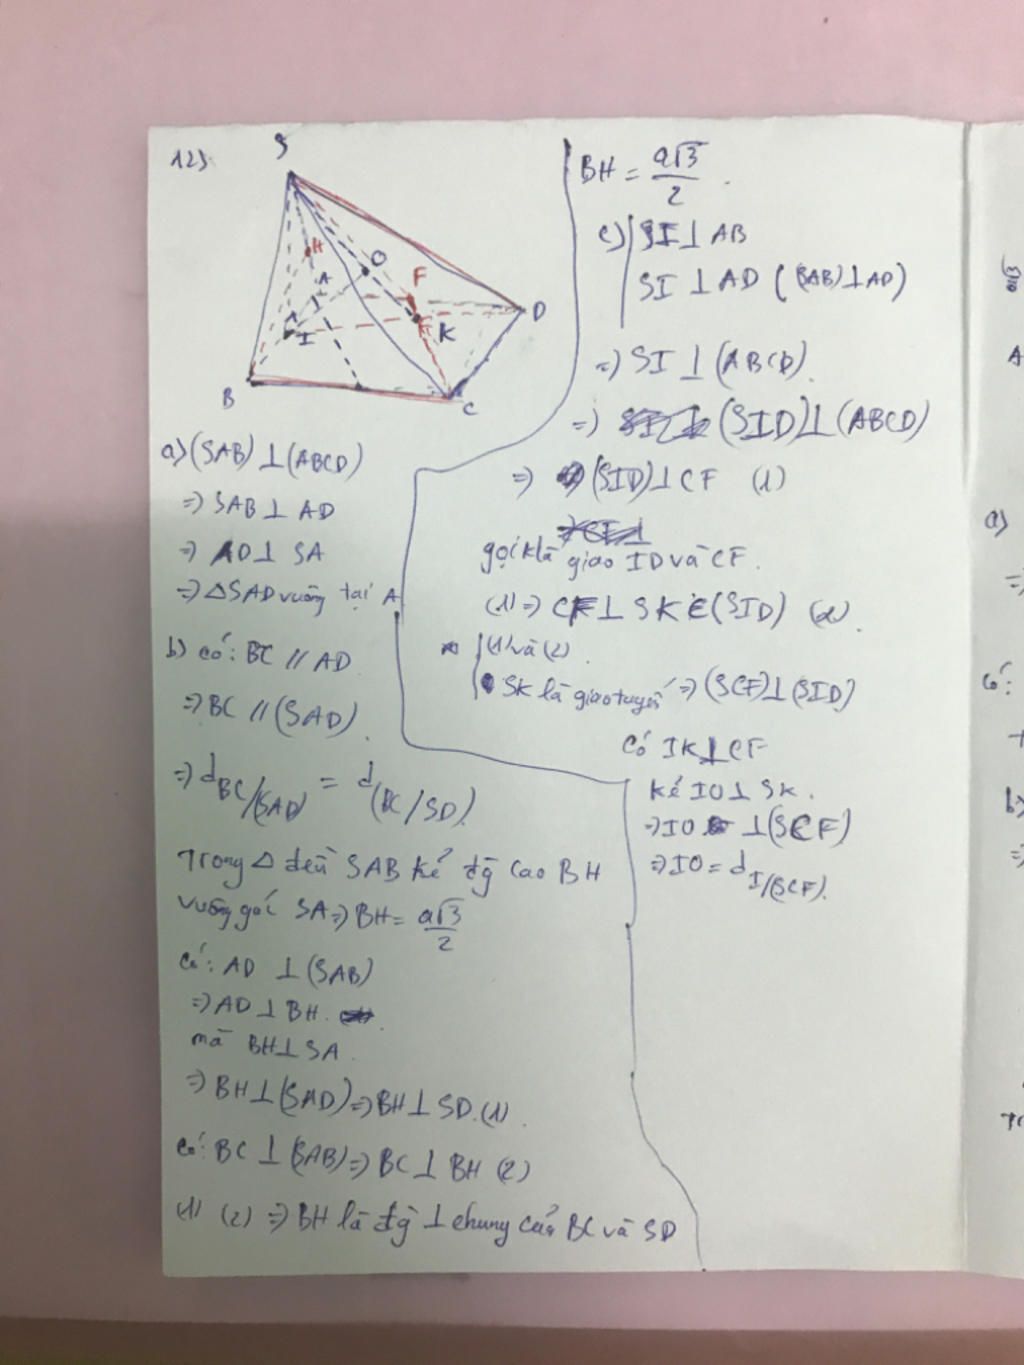 123
S
H
A
O
F
I
K
D
B
C
a) (SAB) ⊥ (ABCD)
=> SAB ⊥ AD
=> AD ⊥ SA
=> ΔSAD vuông tại A
b) có: BC // AD
=> BC // (SAD)
=> d BC/(SAD) = d (BC/SD)
Trong Δ đều SAB kẻ đg cao BH
vuông góc SA => BH = a√3/2
có: AD ⊥ (SAB)
=> AD ⊥ BH.
mà BH ⊥ SA.
=> BH ⊥ (SAD) => BH ⊥ SD. (1)
có: BC ⊥ (SAB) => BC ⊥ BH (2)
(1) (2) => BH là đg ⊥ chung của BC và SD
BH = a√3/2.
c) SI ⊥ AB
SI ⊥ AD ( (SAB) ⊥ AD)
=) SI ⊥ (ABCD).
=) (SID) ⊥ (ABCD)
=> (SID) ⊥ CF (1)
gọi K là giao ID và CF.
(1) => CF ⊥ SK ∈ (SID) (2).
(1) và (2).
SK là giao tuyến => (SCF) ⊥ (SID)
Có IK ⊥ CF
Kẻ IO ⊥ SK.
=> IO ⊥ (SCF)
=> IO = d I/(SCF).
a)
có:
b)